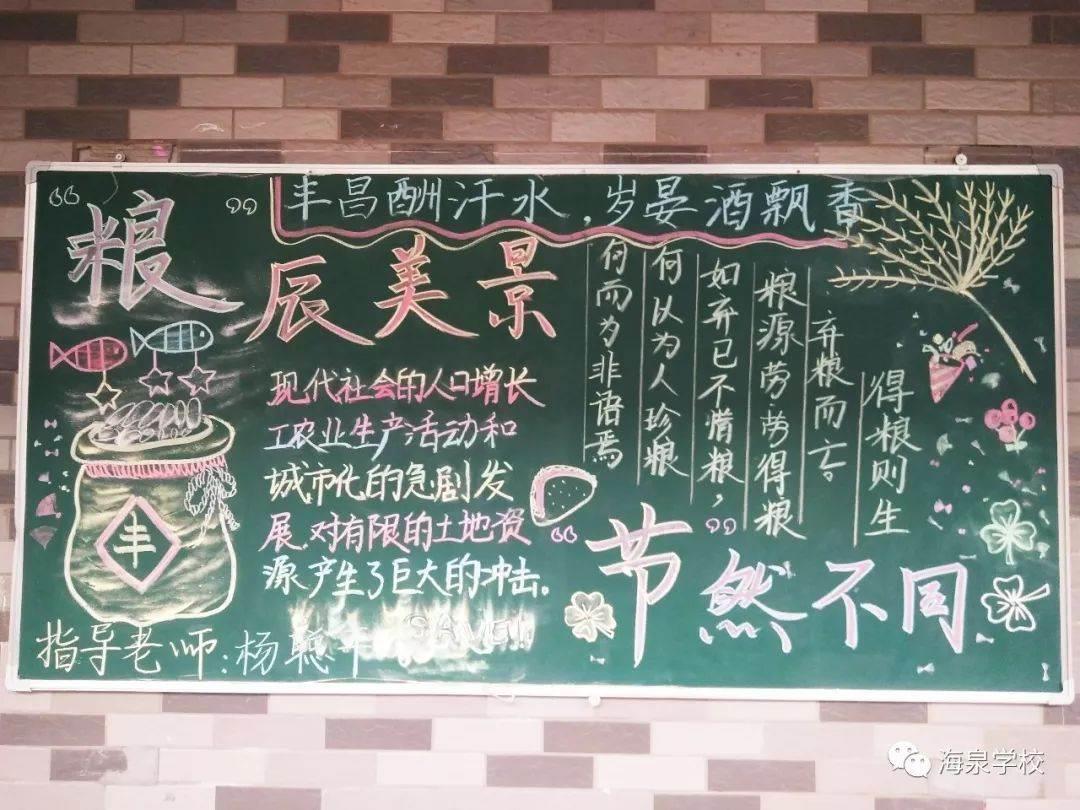 丰昌酬汗水，岁晏酒飘香
“粮”辰美景
现代社会的人口增长
工农业生产活动和
城市化的急剧发
展，对有限的土地资
源产生了巨大的冲击。
丰
指导老师：杨聪
得粮则生
弃粮而亡。
粮源劳劳得粮
如弃已不惜粮，
何以为人珍粮
何而为非语焉
“节”然不同
海泉学校